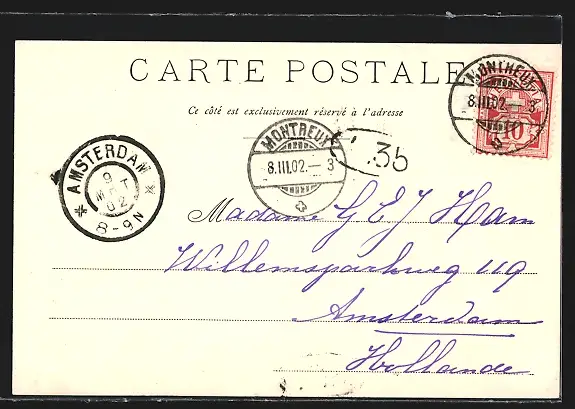 CARTE POSTALE
Ce côté est exclusivement réservé à l'adresse
MONTREUX
8.III.02.—3
10
MONTREUX
8.III.02.—3
35
AMSTERDAM
9 MRT 02
8-9N
Madame G E J Ham
Willemsparkweg 119
Amsterdam
Hollande